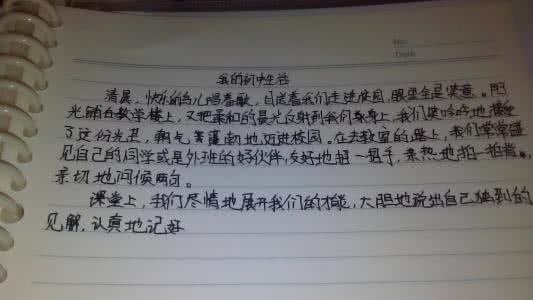 我的初中生活
清晨,快乐的鸟儿唱着歌,目送着我们走进校园,眼里全是笑意。阳
光铺在教学楼上,又把柔和的晨光反射到我们身上,我们笑哈哈地接受
了这份光芒,朝气蓬勃地迈进校园。在去教室的路上,我们常常碰
见自己的同学或是外班的好伙伴,友好地招一招手,亲热地拍一拍肩,
亲切地问候两句。
课堂上,我们尽情地展开我们的才能,大胆地说出自己独到的
见解,认真地记好